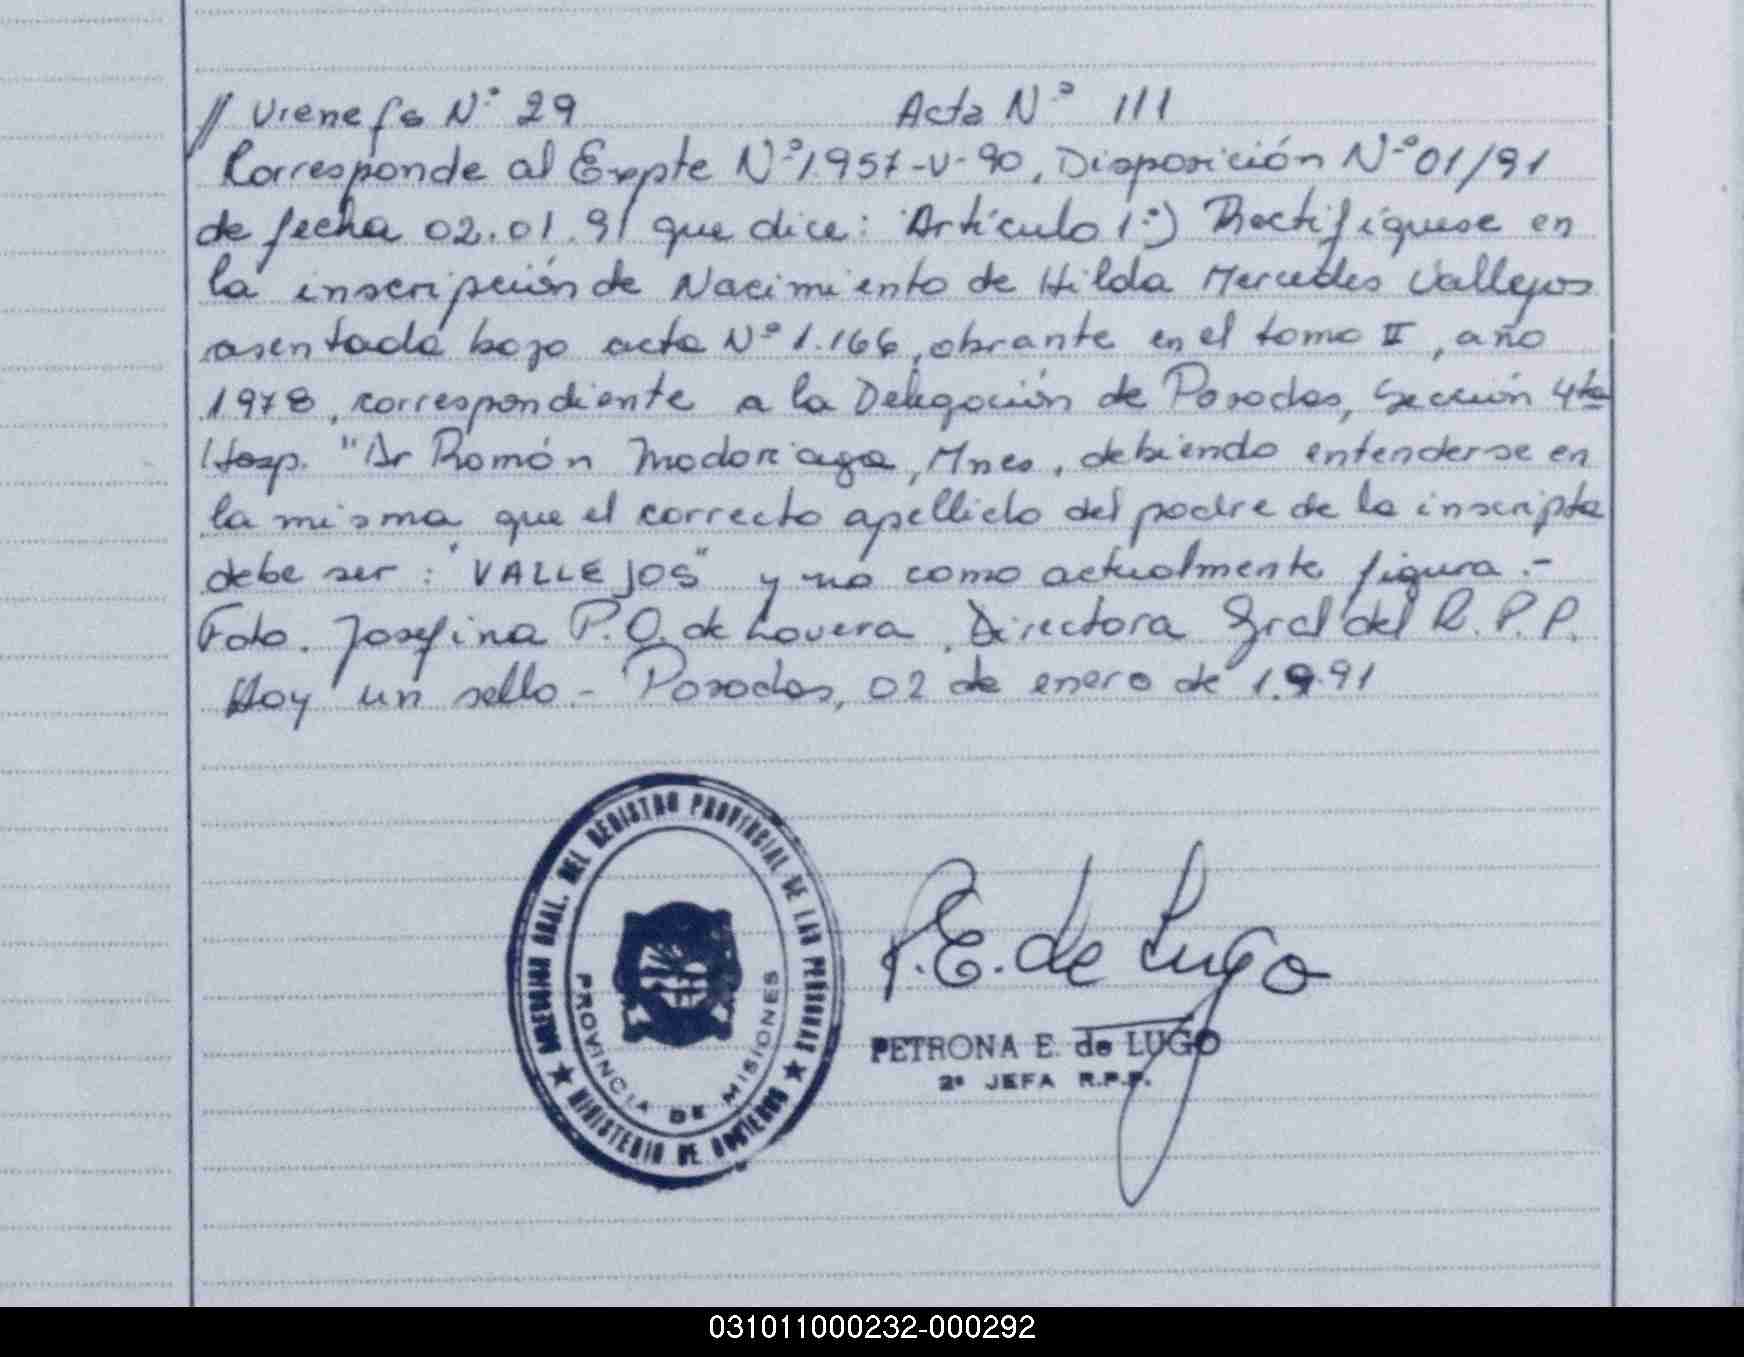 // Viene fs Nº 29 Acta Nº 111
Corresponde al Expte Nº 1.957-V-90, Disposición Nº 01/91
de fecha 02.01.91 que dice: Artículo 1º) Rectifiquese en
la inscripción de Nacimiento de Hilda Mercedes Vallejos
asentada bajo acta Nº 1.166, obrante en el tomo II, año
1978, correspondiente a la Delegación de Posadas, Sección 4ta
Hosp. "Dr Ramón Madariaga, Mnes, debiendo entenderse en
la misma que el correcto apellido del padre de la inscripta
debe ser: "VALLEJOS" y no como actualmente figura.-
Fdo. Josefina P.O. de Lovera, Directora Gral del R.P.P.
Hay un sello.- Posadas, 02 de enero de 1.991
DIRECCION GRAL. DEL REGISTRO PROVINCIAL DE LAS PERSONAS
PROVINCIA DE MISIONES
★ MINISTERIO DE GOBIERNO ★
P.E. de Lugo
PETRONA E. de LUGO
2ª JEFA R.P.P.
031011000232-000292